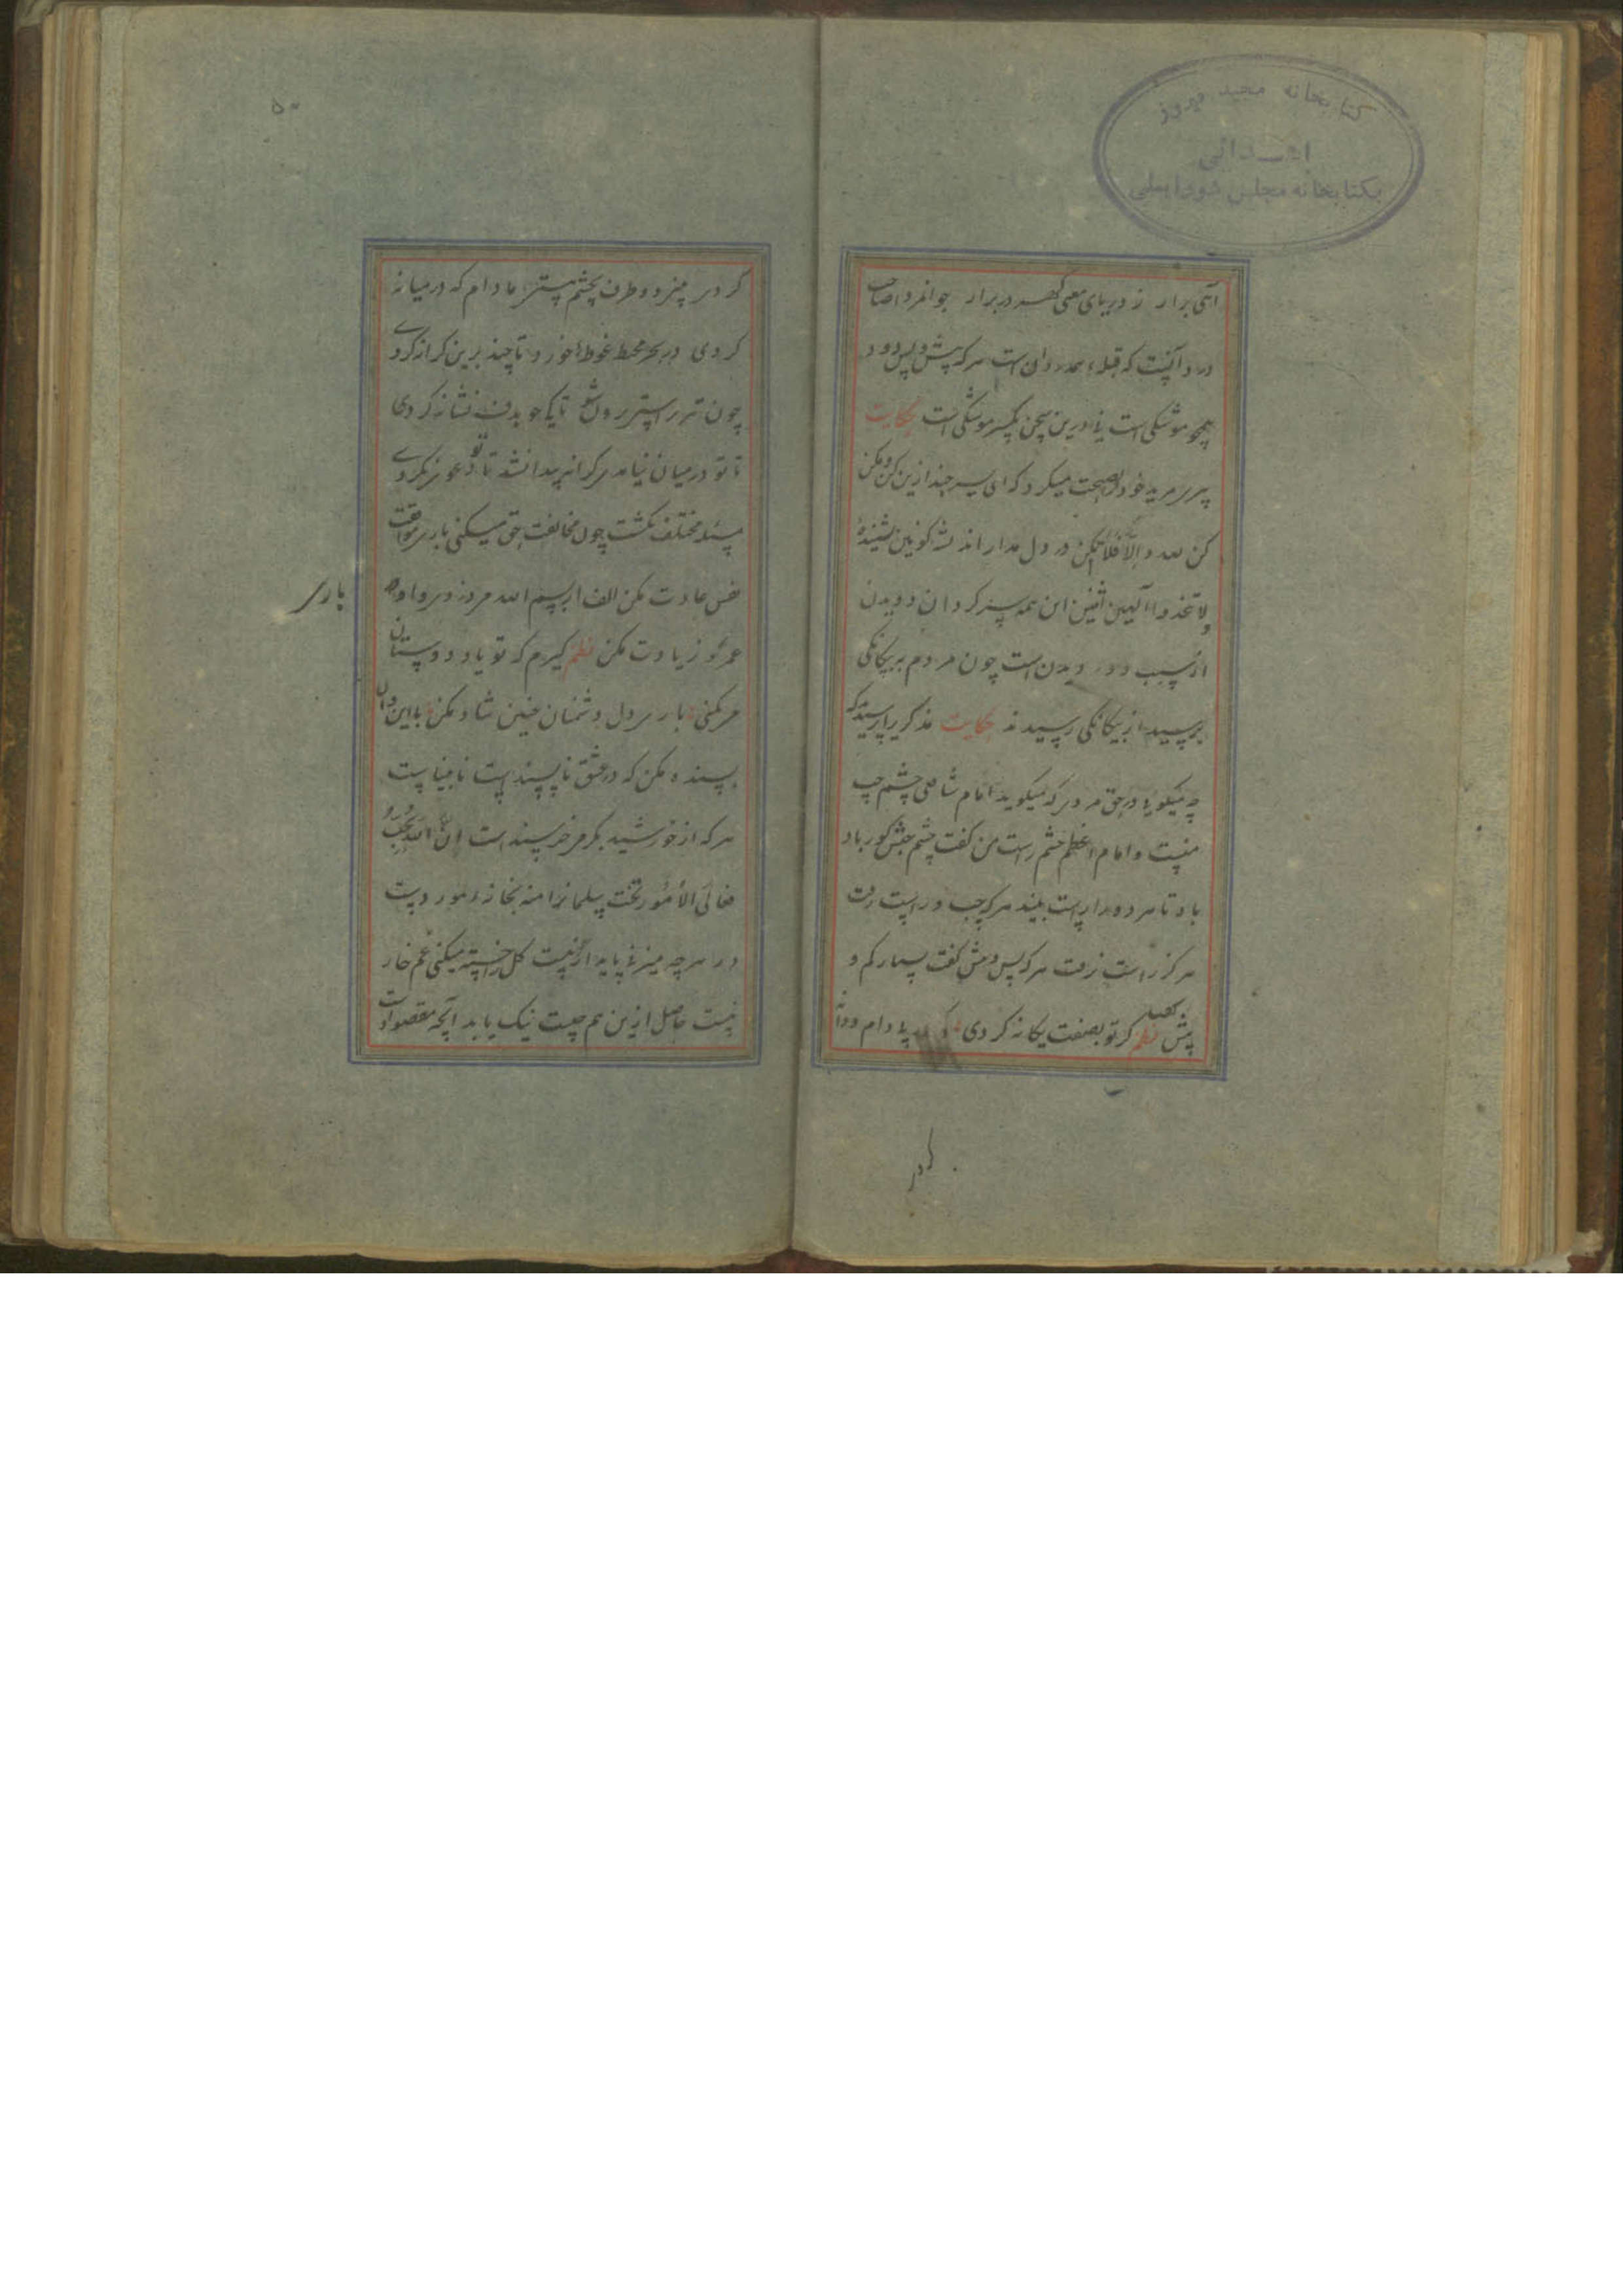 کتابخانه مجید فیروز
اهدائی
بکتابخانه مجلس شورایملی
آهی برار ز دریای معنی کهر دربرار جوانمردا صاحب
درد آنست که قبلهٔ همه مردان است هرکه پیش و پس دود
همچو موشکی است نی نی درین سخن یکسر موشکی است حکایت
پیری مرید خود را نصیحت میکرد که ای پسر چند ازین کن و مکن
کن لله و الا فلا تکن در دل مدار اندیشه کونین نشنیدهٔ
لا تتخذوا الهین اثنین این همه سر کردان دویدن
از سبب دو دیدن است چون مردم بر یکانکی
برسید از بیکانکی رسیدند حکایت مذکری را پرسیدند که
چه میکویی در حق مردی که میکوید امام شافعی چشم چپ
منست و امام اعظم چشم راست من کفت چشم جهنش کور باد
باد تا هر دو را راست بیند هرکه چپ و راست رفت
هرکز راست نرفت هرکه پس و پیش کفت بسیار کم و
پیش نظم کر تو بصفت یکانه کردی پا دام دوا
کردر
۵۰
کردی مادام که درمیانه
کردی در بحر محیط غوطها خور و تا چند برین کرانه کردی
چون تیر راستی برون شو تا یکجو بدف نشانه کردی
تا تو درمیان نیامدی کرانه پیدا نشد تا تو دعوی نکردی
مسئله مختلف نکشت چون مخالفت حق میکنی باری موافقت
نفس عادت مکن الف از بسم الله مدزد و بر واو
باری
عمرو زیادت مکن نظم کیرم که تو یاد دوستان
می نکنی باری دل دشمنان چنین شاد مکن با این و آن
بسنده مکن که در عشق ناپسند است نابیناست
هرکه از خورشید بکرمی خرسند است ان الله یحب
معالی الامور تخت سلیمانرا منه بخانهٔ مور دوست
در هرچه پایدار نیست کل را خسته میکنی غم خار
نیست حاصل ازین هم چیست نیک یابد آنچه مقصود اوست